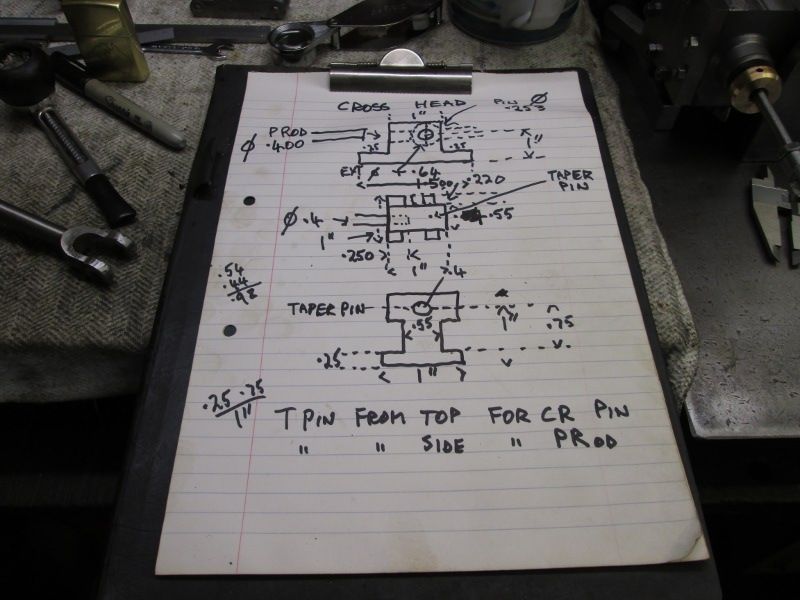 CROSS HEAD
PIN Ø
.255
1"
PROD
Ø .400
.25
.25
1"
EXT Ø .64
.500
.220
TAPER
PIN
Ø .4
.55
1"
.250
1"
.4
.54
.44
.98
TAPER PIN
.55
1"
.75
.25
1"
.25 .75
1"
T PIN FROM TOP FOR CR PIN
" " SIDE " PROD